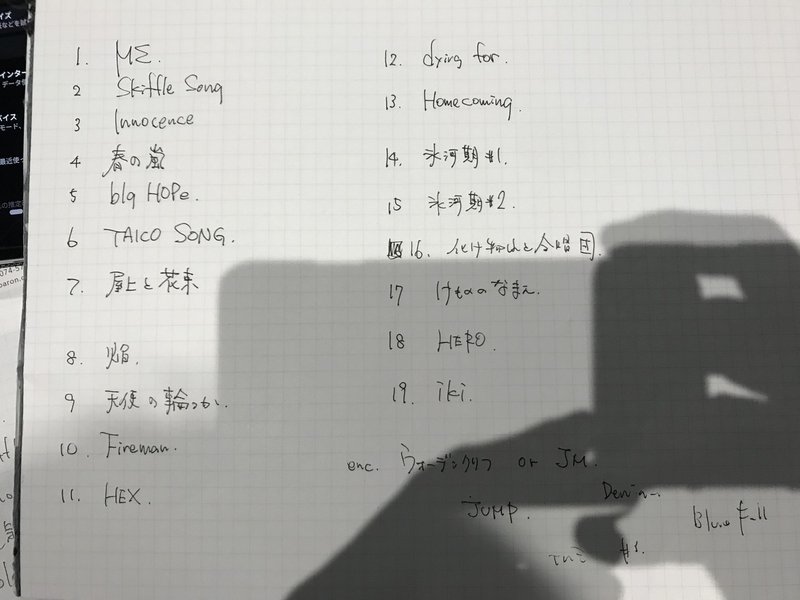 1. ME.
2 Skiffle Song
3 Innocence
4 春の嵐
5 big HOPe.
6 TAICO SONG.
7. 屋上と花束
8. 焔.
9 天使の輪っか.
10. Fireman.
11. HEX.
12. dying for.
13. Homecoming.
14. 氷河期#1.
15 氷河期#2.
16. 化け物と合唱団.
17 けもののなまえ.
18 HERO.
19. iki.
enc. ウォーデンクリフ or JM.
JUMP.
Blue Fall